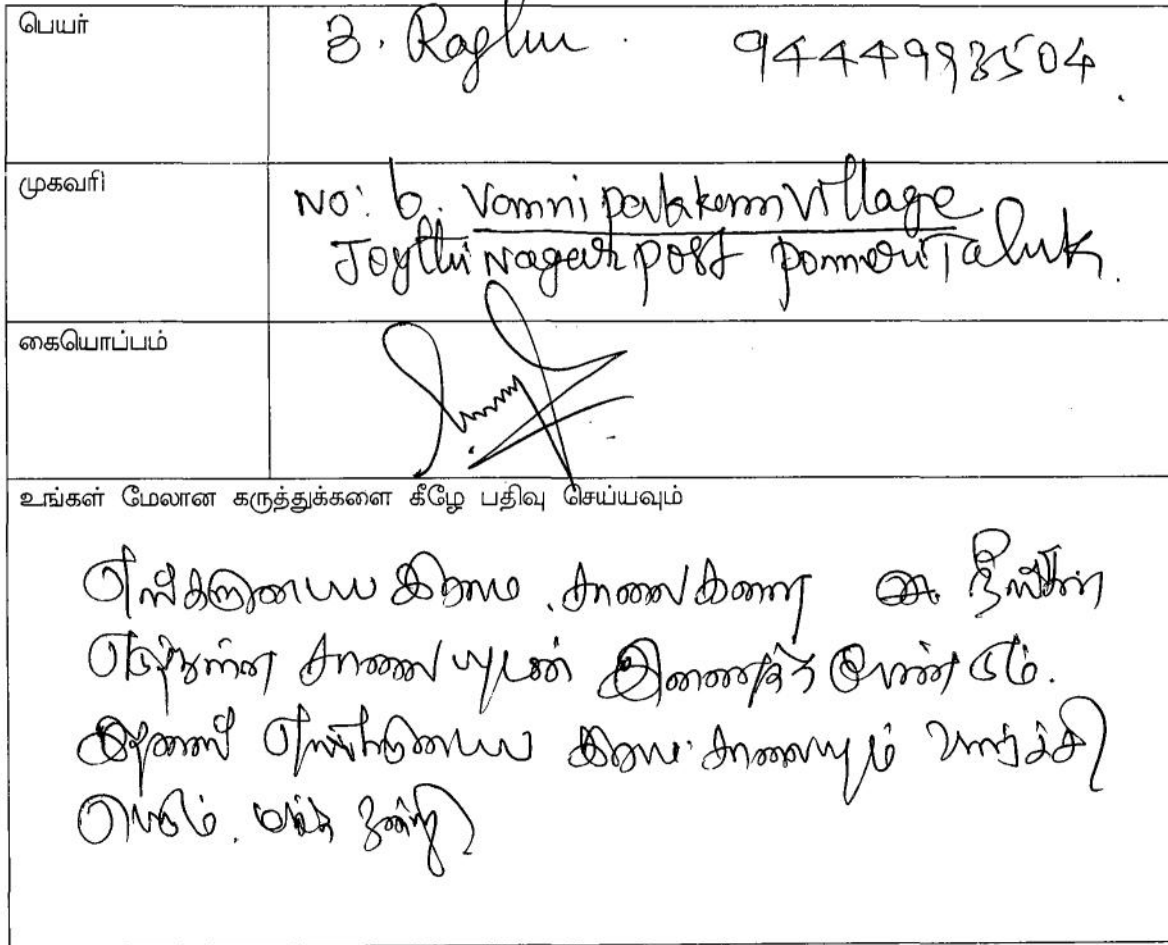 பெயர்
Raghu. 9444993504
முகவரி
No: 6. Vannipakkam Village
Joythi Nagar post ponneri Taluk.
கையொப்பம்
உங்கள் மேலான கருத்துக்களை கீழே பதிவு செய்யவும்
எங்களுடைய கிராம சாலைகளை நீங்கள்
சாலையுடன் இணைக்க வேண்டும்.
இதனால் எங்களுடைய கிராம சாலையும் வளர்ச்சி
பெறும். மிக்க நன்றி